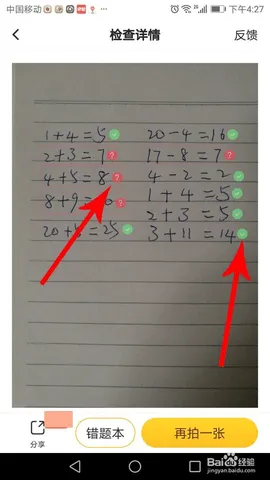 中国移动
下午4:27
检查详情
反馈
1+4=5
20-4=16
2+3=7
17-8=7
4+5=8
4-2=2
8+9=
1+4=5
2+3=5
20+5=25
3+11=14
分享
错题本
再拍一张
Baidu经验
jingyan.baidu.com